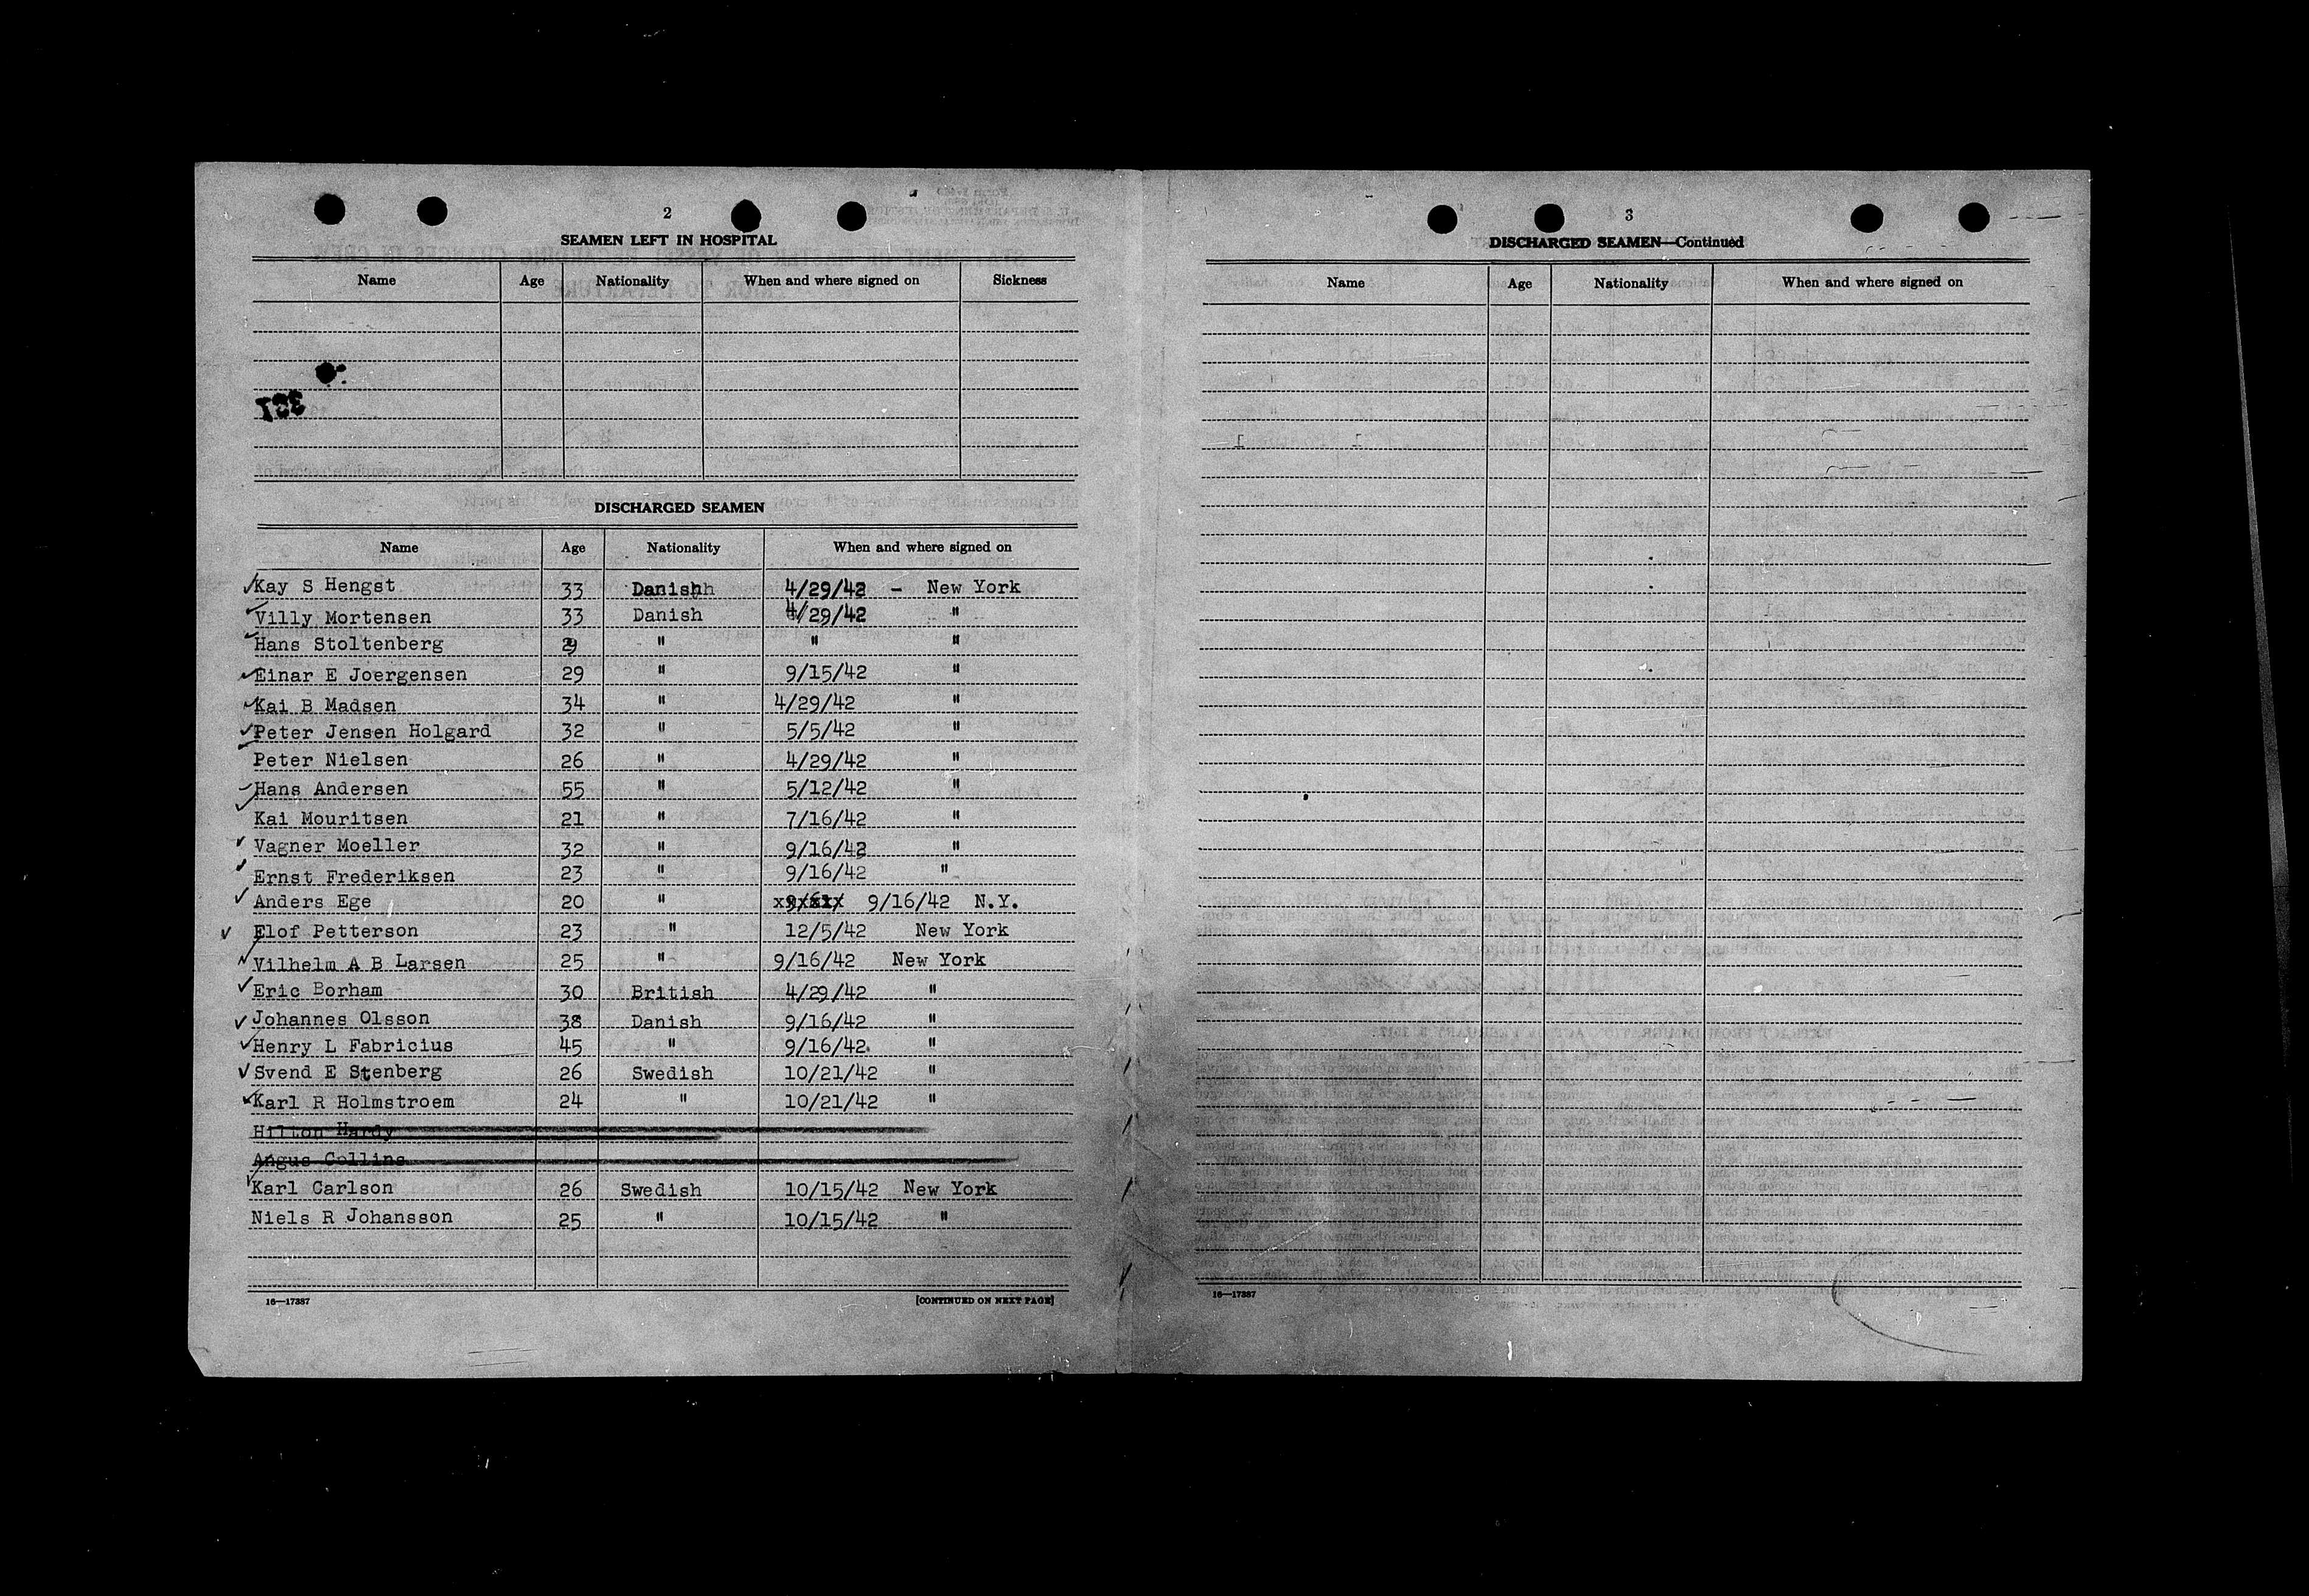 2
SEAMEN LEFT IN HOSPITAL
Name Age Nationality When and where signed on Sickness
DISCHARGED SEAMEN
Name Age Nationality When and where signed on
Kay S Hengst 33 Danishh 4/29/42 - New York
Villy Mortensen 33 Danish 4/29/42 "
Hans Stoltenberg 29 " " "
Einar E Joergensen 29 " 9/15/42 "
Kai B Madsen 34 " 4/29/42 "
Peter Jensen Holgard 32 " 5/5/42 "
Peter Nielsen 26 " 4/29/42 "
Hans Andersen 55 " 5/12/42 "
Kai Mouritsen 21 " 7/16/42 "
Vagner Moeller 32 " 9/16/42 "
Ernst Frederiksen 23 " 9/16/42 "
Anders Ege 20 " 9/16/42 N.Y.
Elof Petterson 23 " 12/5/42 New York
Vilhelm A B Larsen 25 " 9/16/42 New York
Eric Borham 30 British 4/29/42 "
Johannes Olsson 38 Danish 9/16/42 "
Henry L Fabricius 45 " 9/16/42. "
Svend E Stenberg 26 Swedish 10/21/42 "
Karl R Holmstroem 24 " 10/21/42 "
Hilton Hardy
Angus Collins
Karl Carlson 26 Swedish 10/15/42 New York
Niels R Johansson 25 " 10/15/42 "
16—17387 [CONTINUED ON NEXT PAGE]
3
DISCHARGED SEAMEN—Continued
Name Age Nationality When and where signed on
16—17387